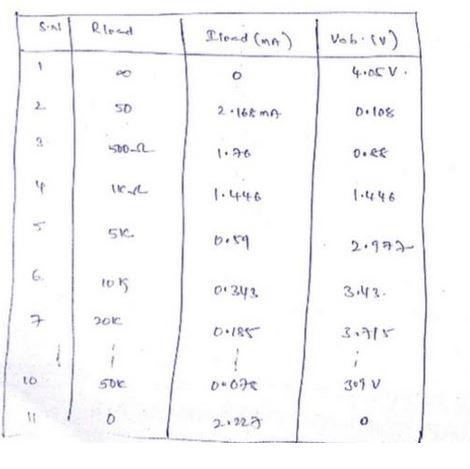 S.N Rload Iload (mA) Vob. (V)
1 ∞ 0 4.05 V.
2 50 2.168 mA 0.108
3 500Ω 1.76 0.88
4 1KΩ 1.446 1.446
5 5K 0.59 2.977
6 10K 0.343 3.43.
7 20K 0.185 3.715
10 50K 0.078 3.9 V
11 0 2.227 0